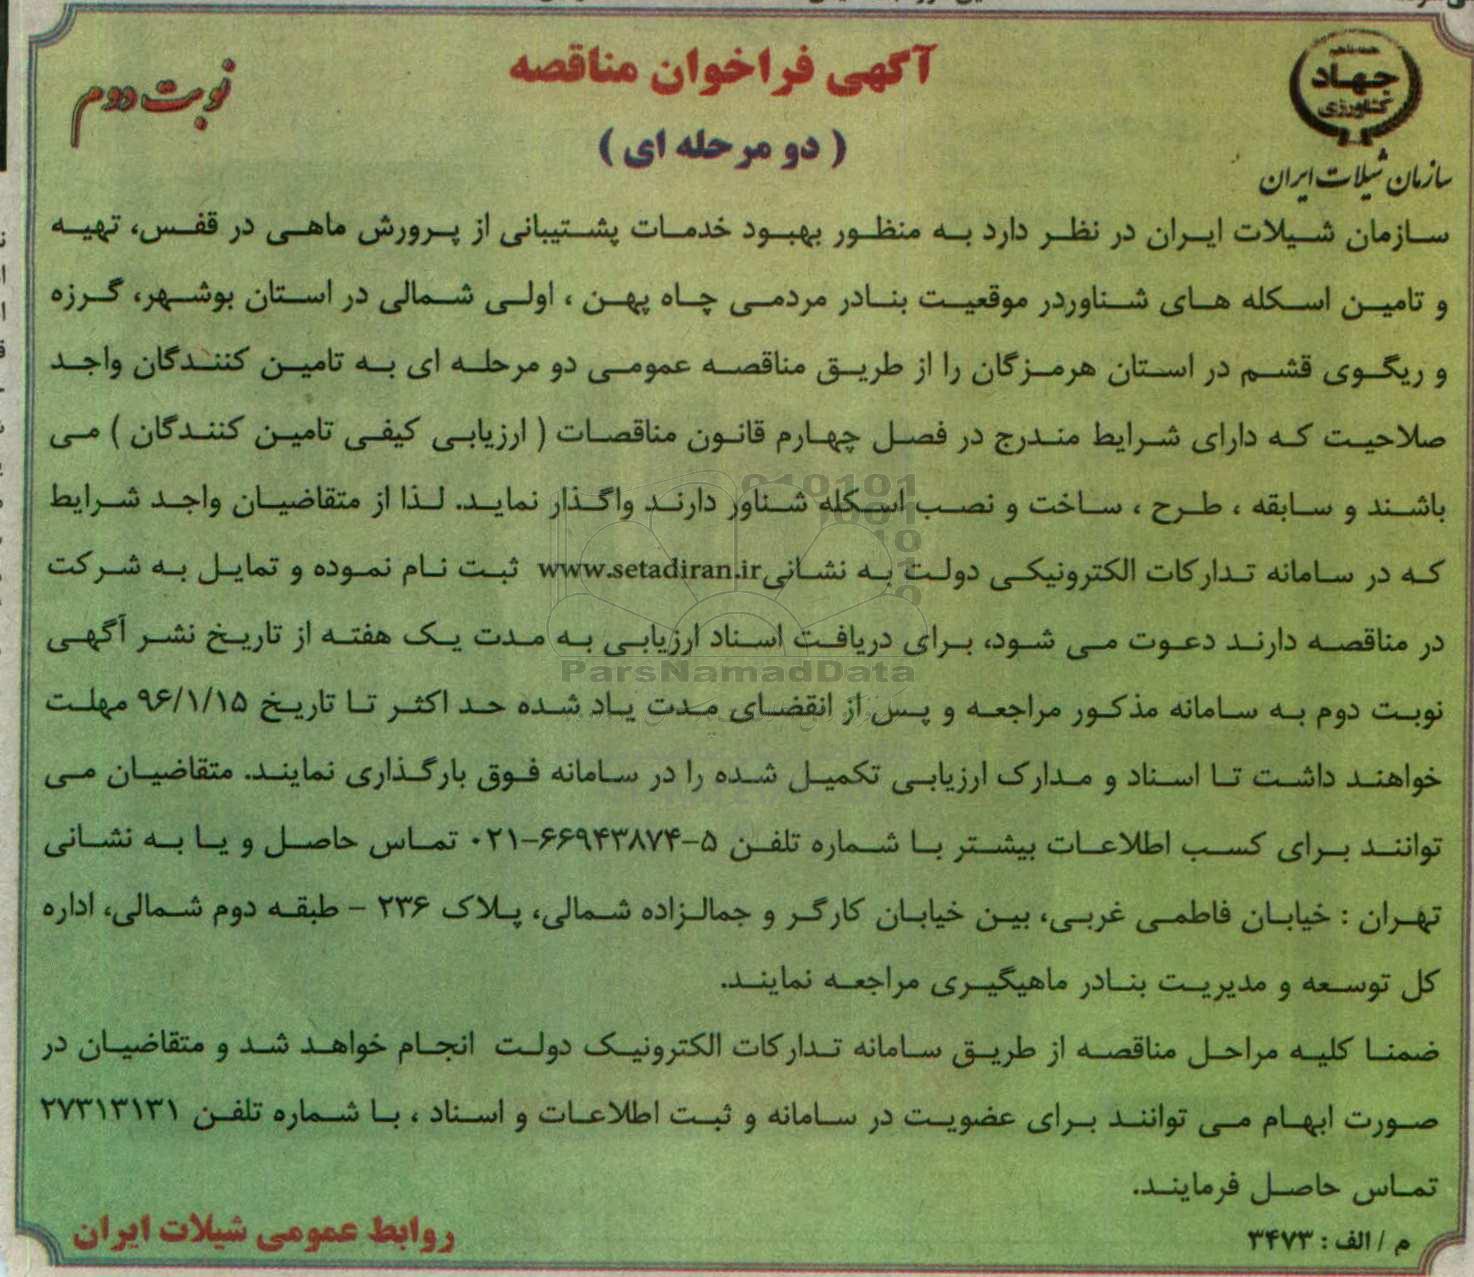 آگهی فراخوان مناقصه
( دو مرحله ای )
نوبت دوم
جهاد
کشاورزی
سازمان شیلات ایران
سازمان شیلات ایران در نظر دارد به منظور بهبود خدمات پشتیبانی از پرورش ماهی در قفس، تهیه
و تامین اسکله های شناوردر موقعیت بنادر مردمی چاه پهن ، اولی شمالی در استان بوشهر، گرزه
و ریگوی قشم در استان هرمزگان را از طریق مناقصه عمومی دو مرحله ای به تامین کنندگان واجد
صلاحیت که دارای شرایط مندرج در فصل چهارم قانون مناقصات ( ارزیابی کیفی تامین کنندگان ) می
باشند و سابقه ، طرح ، ساخت و نصب اسکله شناور دارند واگذار نماید. لذا از متقاضیان واجد شرایط
که در سامانه تدارکات الکترونیکی دولت به نشانی www.setadiran.ir ثبت نام نموده و تمایل به شرکت
در مناقصه دارند دعوت می شود، برای دریافت اسناد ارزیابی به مدت یک هفته از تاریخ نشر آگهی
نوبت دوم به سامانه مذکور مراجعه و پس از انقضای مدت یاد شده حد اکثر تا تاریخ ۹۶/۱/۱۵ مهلت
خواهند داشت تا اسناد و مدارک ارزیابی تکمیل شده را در سامانه فوق بارگذاری نمایند. متقاضیان می
توانند برای کسب اطلاعات بیشتر با شماره تلفن ۵-۶۶۹۴۳۸۷۴-۰۲۱ تماس حاصل و یا به نشانی
تهران : خیابان فاطمی غربی، بین خیابان کارگر و جمالزاده شمالی، پلاک ۲۳۶ - طبقه دوم شمالی، اداره
کل توسعه و مدیریت بنادر ماهیگیری مراجعه نمایند.
ضمنا کلیه مراحل مناقصه از طریق سامانه تدارکات الکترونیک دولت انجام خواهد شد و متقاضیان در
صورت ابهام می توانند برای عضویت در سامانه و ثبت اطلاعات و اسناد ، با شماره تلفن ۲۷۳۱۳۱۳۱
تماس حاصل فرمایند.
م / الف : ۳۴۷۳
روابط عمومی شیلات ایران
ParsNamadData